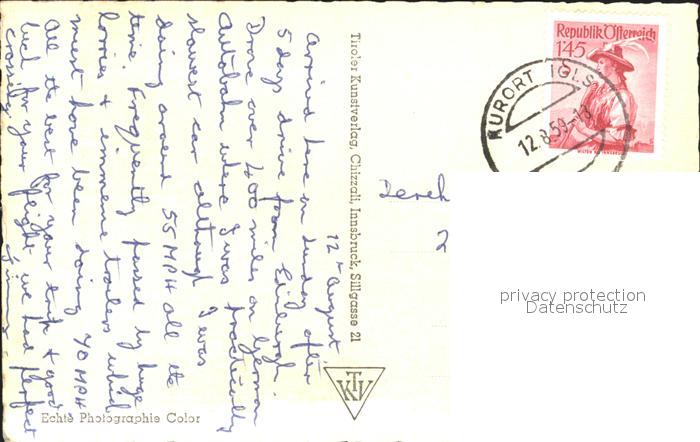 12th August
Arrived here on Sunday after
5 days drive from Edinburgh.
Drove over 400 miles on German
Autobahn where I was practically
slowest car although I was
doing around 55 MPH all the
time. Frequently passed by huge
lorries & immense trailers which
must have been doing 70 MPH
All the best for your trip & good
luck for your flight - we had perfect
crossing
Tiroler Kunstverlag, Chizzali, Innsbruck, Sillgasse 21
Echte Photographie Color
TKV
Republik Österreich
1'45
KURORT IGLS
12.8.59-18
Derek
privacy protection
Datenschutz